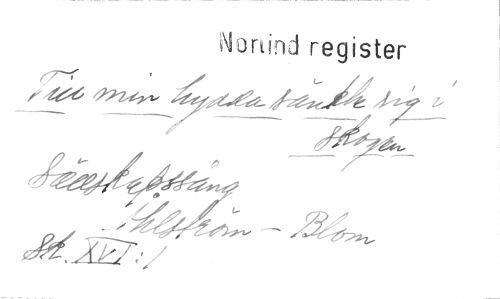 Norlind register
Till min hydda sänkte sig i
skogen
Sällskapssång
Ahlström - Blom
sk. XVI:1